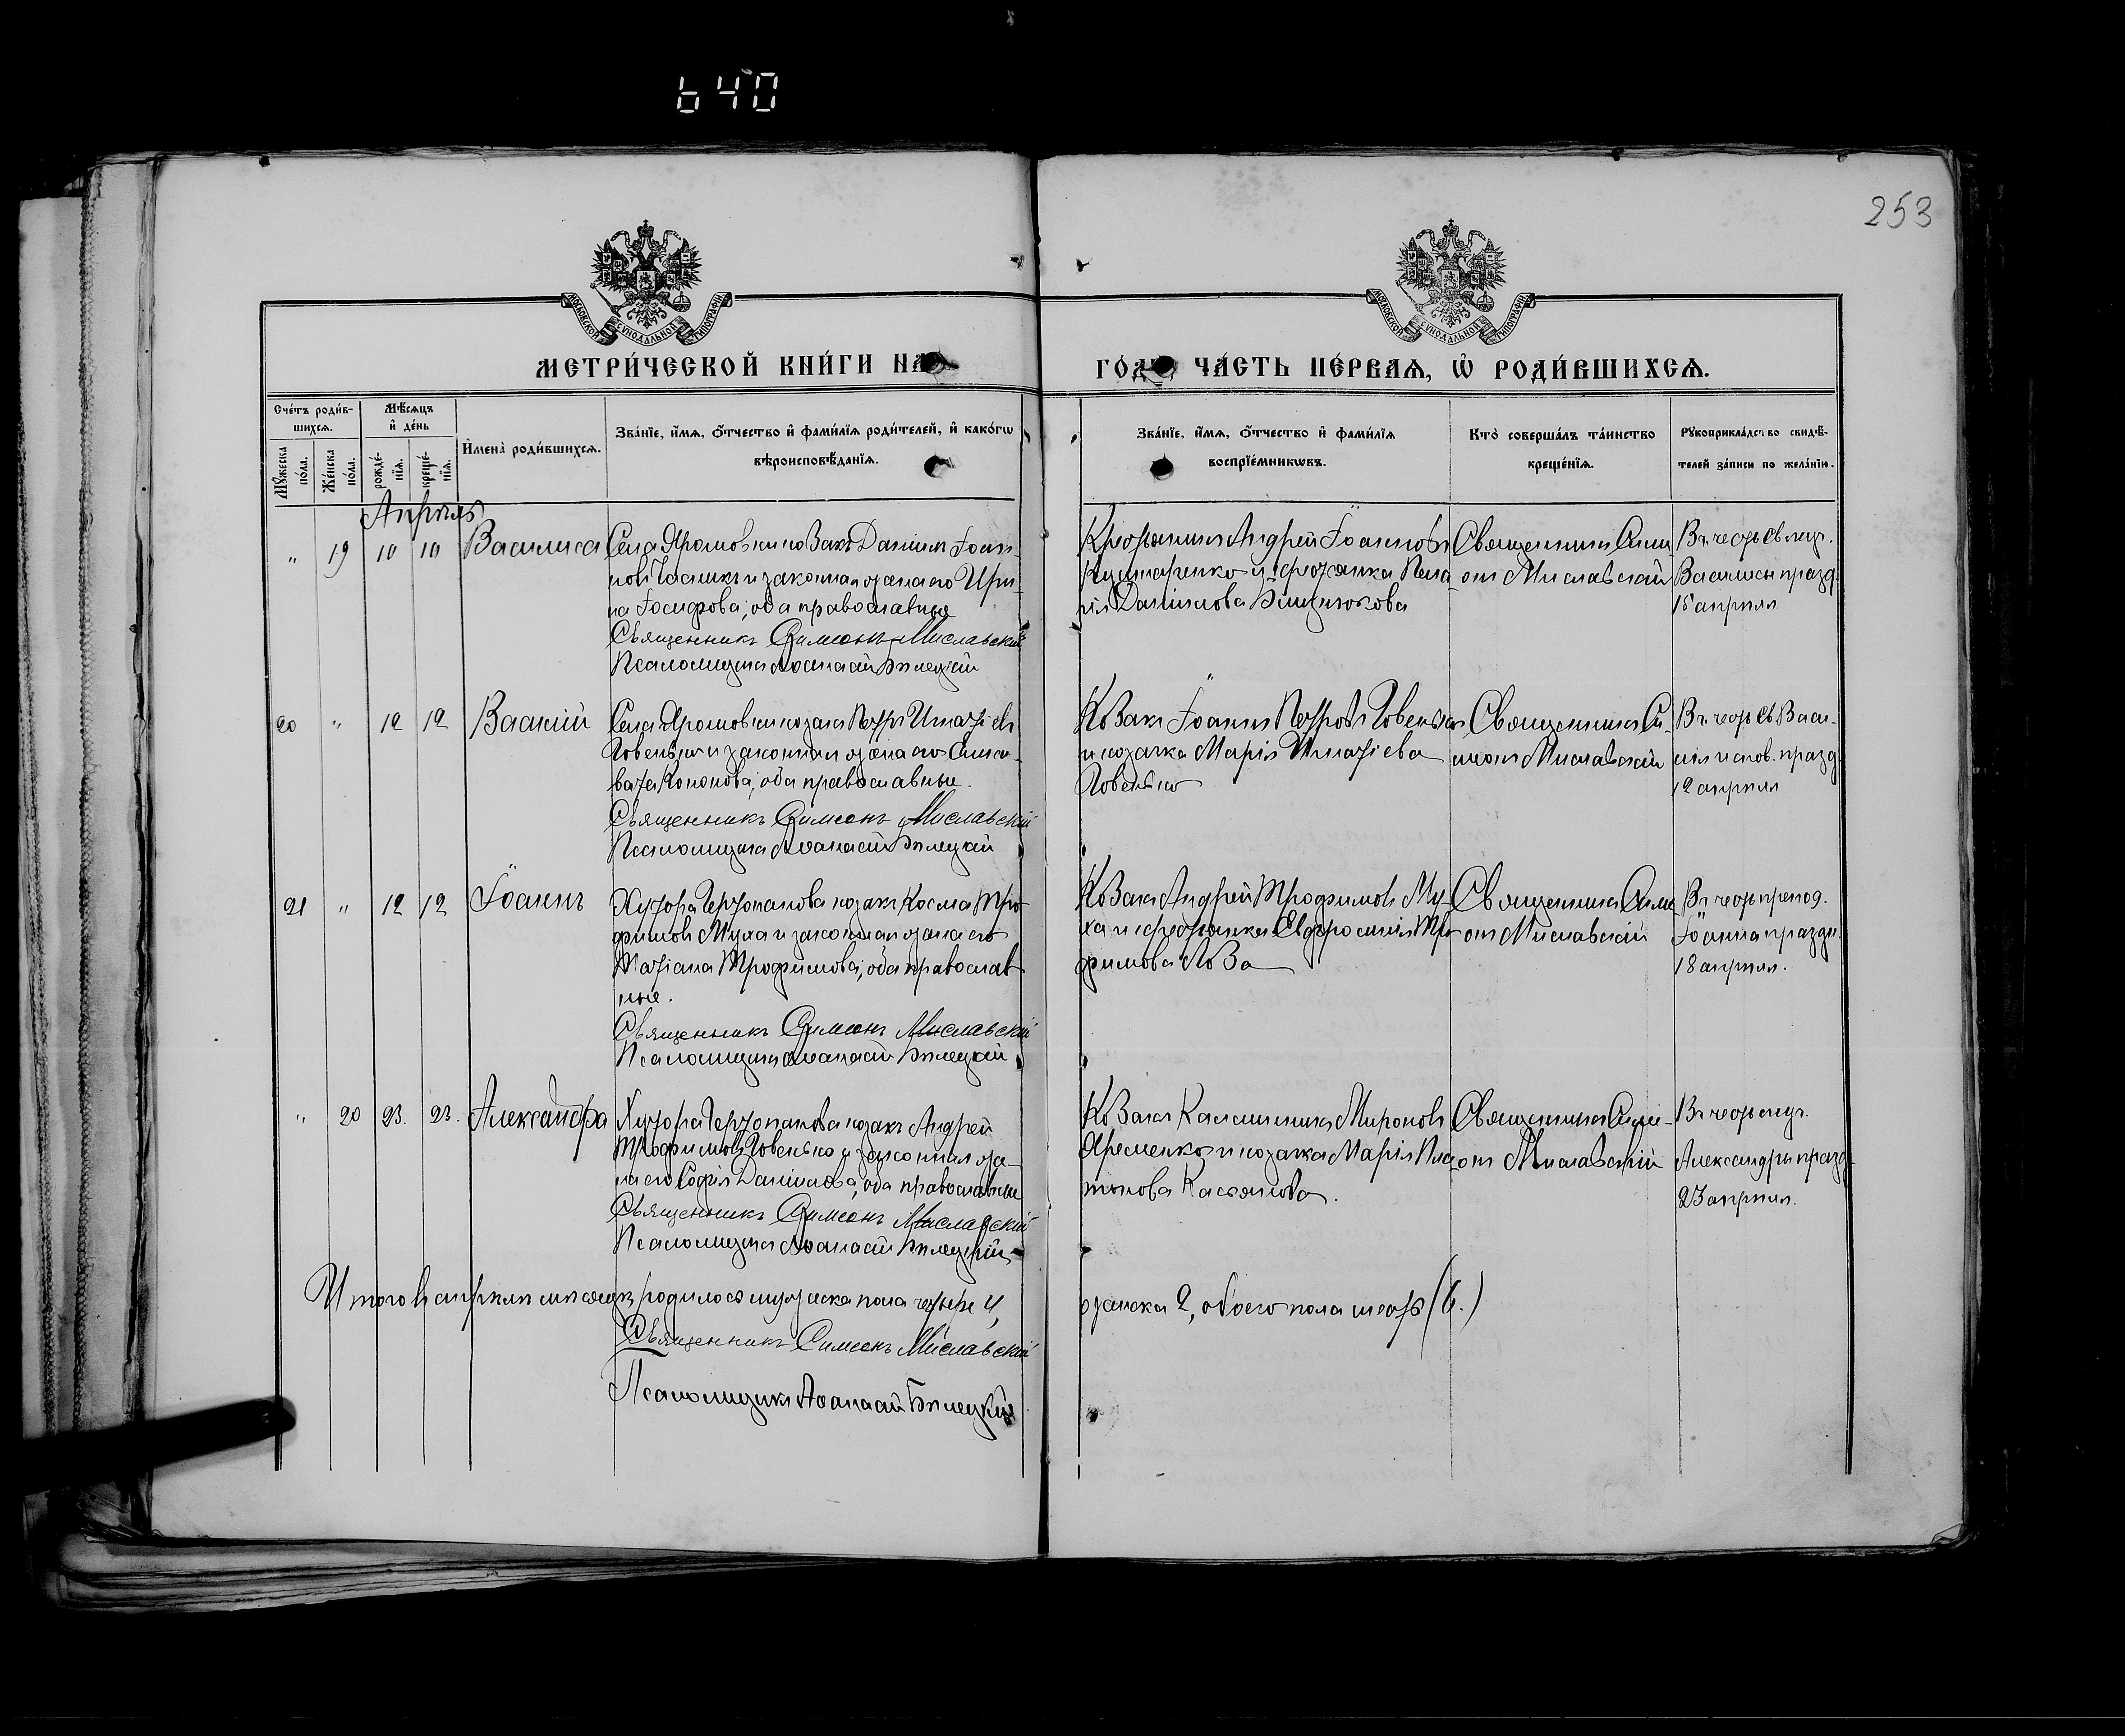 640
253
МОСКОВСКОЙ СѴНОДАЛЬНОЙ ТИПОГРАФІИ
МОСКОВСКОЙ СѴНОДАЛЬНОЙ ТИПОГРАФІИ
МЕТРИ́ЧЕСКОЙ КНИ́ГИ НА
ГО́ДЪ ЧА́СТЬ ПЕ́РВАѦ, Ѡ҆ РОДИ́ВШИХСѦ.
Сче́тъ роди́в-
шихсѧ.
Мꙋ́жеска по́ла.
Же́нска по́ла.
Мѣ́сѧцъ
и҆ де́нь
рожде́-
нїѧ.
креще́-
нїѧ.
И҆мена̀ роди́вшихсѧ.
Зва́нїе, и҆́мѧ, ѻ҆́тчество и҆ фами́лїѧ роди́телей, и҆ како́гѡ
вѣроисповѣ́данїѧ.
Зва́нїе, и҆́мѧ, ѻ҆́тчество и҆ фами́лїѧ
воспрїе́мникѡвъ.
Кто̀ соверша́лъ та́инство
креще́нїѧ.
Рꙋкоприкла́дство свидѣ́-
телей за́писи по жела́нїю.
Апрѣль
" 19 10 10 Василиса
Села Яромовки козакъ Даніилъ Іоан-
новъ и законная жена его Ири-
на Іосифова; оба православные
Священникъ Симеонъ Миславскій
Псаломщикъ Аѳанасій Бѣлецкій
Крестьянинъ Андрей Іоанновъ
Кушнаренко и крестьянка Пела-
гія Даніилова
Священникъ Симе-
онъ Миславскій
Въ честь св. муч.
Василисы празд.
15 апрѣля
20 " 12 12 Василій
Села Яромовки козакъ Петръ Игнатіевъ
Човенько и законная жена его Елиса-
вета Кононова; оба православные.
Священникъ Симеонъ Миславскій
Псаломщикъ Аѳанасій Бѣлецкій
Козакъ Іоаннъ Петровъ Човенько
и козачка Марія Игнатіева
Човенько
Священникъ Си-
меонъ Миславскій
Въ честь св. Васи-
лія испов. празд.
12 апрѣля
21 " 12 12 Іоаннъ
Хутора козакъ Косма Тро-
фимовъ Муха и законная жена его
Татіана Трофимова; оба православ-
ные.
Священникъ Симеонъ Миславскій
Псаломщикъ Аѳанасій Бѣлецкій
Козакъ Андрей Трофимовъ Му-
ха и крестьянка Евфросинія Тро-
фимова Лоза
Священникъ Симе-
онъ Миславскій
Въ честь препод.
Іоанна праздн.
18 апрѣля.
" 20 23. 23. Александра
Хутора козакъ Андрей
Трофимовъ Човенько и законная же-
на его Софія Даніилова; оба православные
Священникъ Симеонъ Миславскій
Псаломщикъ Аѳанасій Бѣлецкій
Козакъ Калинникъ Мироновъ
Яременко и козачка Марія Пла-
тонова Касьянова.
Священникъ Симе-
онъ Миславскій
Въ честь муч.
Александры празд.
23 апрѣля.
Итого въ апрѣлѣ мѣсяцѣ родилось мужеска пола четыре 4,
женска 2, обоего пола шесть (6.)
Священникъ Симеонъ Миславскій
Псаломщикъ Аѳанасій Бѣлецкій